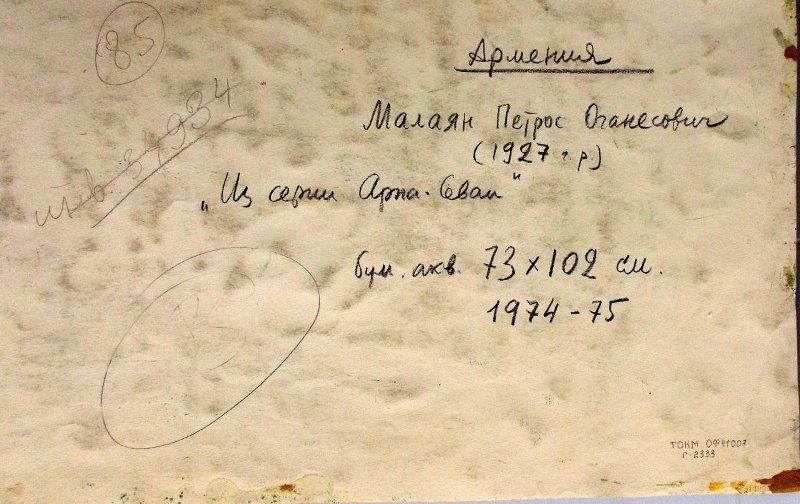 85
Армения
инв 34934
Малаян Петрос Оганесович
(1927 г.р)
„Из серии Арпа-Севан"
бум. акв. 73х102 см.
1974-75
ТОКМ ОФ41007
Г-2333